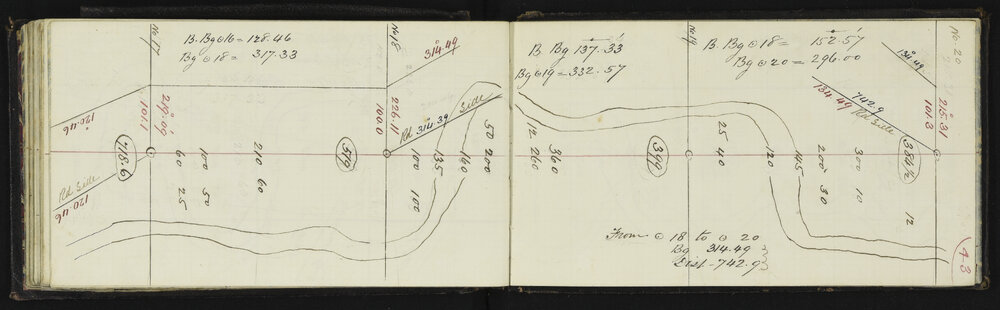 B. Bg ⊙ 16 = 128.46
Bg ⊙ 18 = 317.33
No 17
120.46
101.1
219.09
60 25
100 50
240 60
Rd Side
120.46
No 18
314.49
100.0
226.11
Rd 314.39 Side
100 100
135
160
50 200
B Bg 137.33
Bg ⊙ 19 = 332.57
12 260
360
390
No 19
25 40
120
145
200 30
300 10
12
B. Bg ⊙ 18 = 152.57
Bg ⊙ 20 = 296.00
134.49
742.9
Rd Side
134.49
No. 20
101.3
215.31
From ⊙ 18 to ⊙ 20
Bg 314.49
Dist - 742.9
43